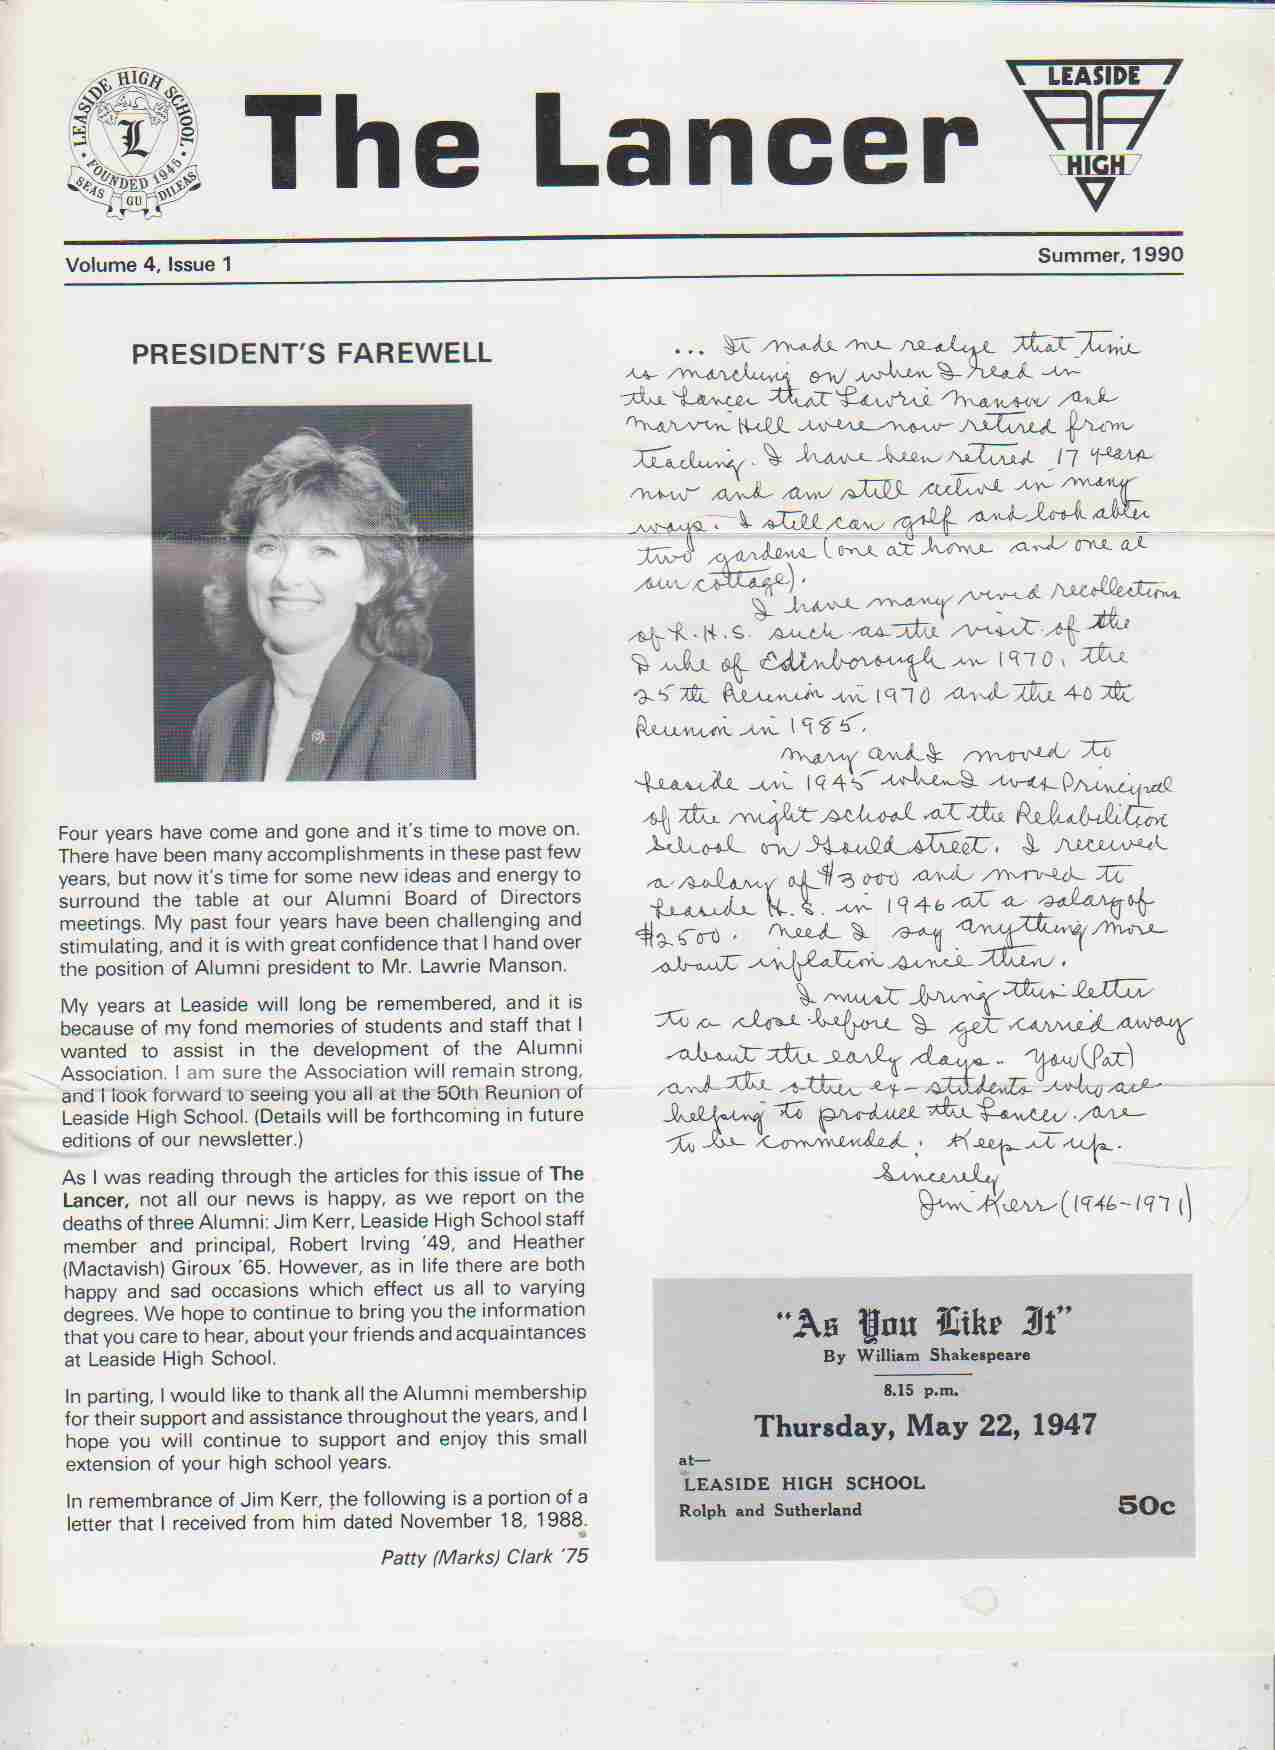 LEASIDE HIGH SCHOOL
L
FOUNDED 1945
SEAS GU DILEAS
The Lancer
LEASIDE
HIGH
Volume 4, Issue 1
Summer, 1990
PRESIDENT'S FAREWELL
Four years have come and gone and it's time to move on.
There have been many accomplishments in these past few
years, but now it's time for some new ideas and energy to
surround the table at our Alumni Board of Directors
meetings. My past four years have been challenging and
stimulating, and it is with great confidence that I hand over
the position of Alumni president to Mr. Lawrie Manson.
My years at Leaside will long be remembered, and it is
because of my fond memories of students and staff that I
wanted to assist in the development of the Alumni
Association. I am sure the Association will remain strong,
and I look forward to seeing you all at the 50th Reunion of
Leaside High School. (Details will be forthcoming in future
editions of our newsletter.)
As I was reading through the articles for this issue of The
Lancer, not all our news is happy, as we report on the
deaths of three Alumni: Jim Kerr, Leaside High School staff
member and principal, Robert Irving '49, and Heather
(Mactavish) Giroux '65. However, as in life there are both
happy and sad occasions which effect us all to varying
degrees. We hope to continue to bring you the information
that you care to hear, about your friends and acquaintances
at Leaside High School.
In parting, I would like to thank all the Alumni membership
for their support and assistance throughout the years, and I
hope you will continue to support and enjoy this small
extension of your high school years.
In remembrance of Jim Kerr, the following is a portion of a
letter that I received from him dated November 18, 1988.
Patty (Marks) Clark '75
... It made me realize that time
is marching on when I read in
the Lancer that Lawrie Manson and
Marvin Hill were now retired from
teaching. I have been retired 17 years
now and am still active in many
ways. I still can golf and look after
two gardens (one at home and one at
our cottage).
I have many vivid recollections
of L.H.S. such as the visit of the
Duke of Edinborough in 1970, the
25th Reunion in 1970 and the 40th
Reunion in 1985.
Mary and I moved to
Leaside in 1945 when I was Principal
of the night school at the Rehabilition
School on Gould street. I received
a salary of $3000 and moved to
Leaside H.S. in 1946 at a salary of
$2500. Need I say anything more
about inflation since then.
I must bring this letter
to a close before I get carried away
about the early days. You (Pat)
and the other ex-students who are
helping to produce the Lancer are
to be commended. Keep it up.
Sincerely
Jim Kerr (1946-1971)
"As You Like It"
By William Shakespeare
8.15 p.m.
Thursday, May 22, 1947
at—
LEASIDE HIGH SCHOOL
Rolph and Sutherland
50c